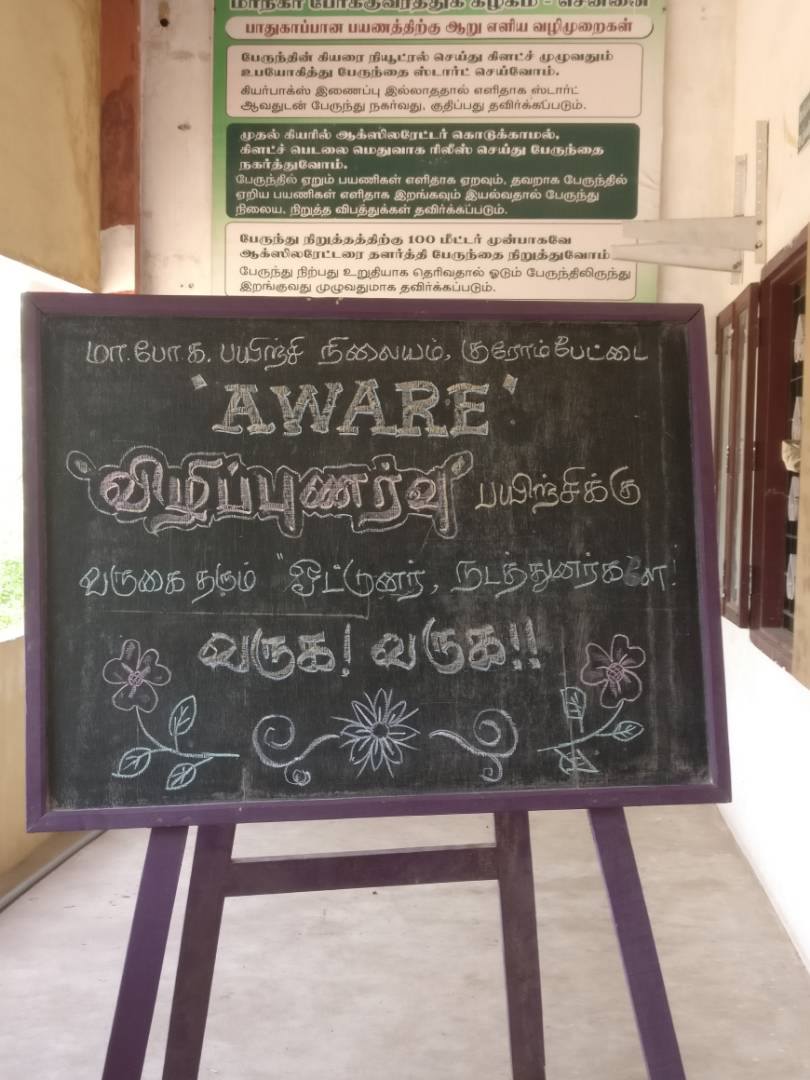 மாநகர போக்குவரத்துக் கழகம் - சென்னை
பாதுகாப்பான பயணத்திற்கு ஆறு எளிய வழிமுறைகள்
பேருந்தின் கியரை நியூட்ரல் செய்து கிளட்ச் முழுவதும்
உபயோகித்து பேருந்தை ஸ்டார்ட் செய்வோம்.
கியர்பாக்ஸ் இணைப்பு இல்லாததால் எளிதாக ஸ்டார்ட்
ஆவதுடன் பேருந்து நகர்வது, குதிப்பது தவிர்க்கப்படும்.
முதல் கியரில் ஆக்ஸிலரேட்டர் கொடுக்காமல்,
கிளட்ச் பெடலை மெதுவாக ரிலீஸ் செய்து பேருந்தை
நகர்த்துவோம்.
பேருந்தில் ஏறும் பயணிகள் எளிதாக ஏறவும், தவறாக பேருந்தில்
ஏறிய பயணிகள் எளிதாக இறங்கவும் இயல்வதால் பேருந்து
நிலைய, நிறுத்த விபத்துக்கள் தவிர்க்கப்படும்.
பேருந்து நிறுத்தத்திற்கு 100 மீட்டர் முன்பாகவே
ஆக்ஸிலரேட்டரை தளர்த்தி பேருந்தை நிறுத்துவோம்
பேருந்து நிற்பது உறுதியாக தெரிவதால் ஓடும் பேருந்திலிருந்து
இறங்குவது முழுவதுமாக தவிர்க்கப்படும்.
மா.போ.க. பயிற்சி நிலையம், குரோம்பேட்டை
'AWARE'
"விழிப்புணர்வு" பயிற்சிக்கு
வருகை தரும் "ஓட்டுனர், நடத்துனர்களே!
வருக! வருக!!